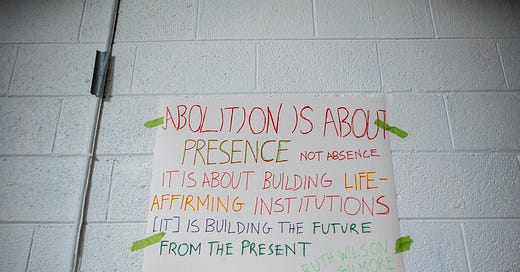 ABOLITION IS ABOUT
PRESENCE NOT ABSENCE
IT IS ABOUT BUILDING LIFE-
AFFIRMING INSTITUTIONS
[IT] IS BUILDING THE FUTURE
FROM THE PRESENT
RUTH WILSON
GILMORE